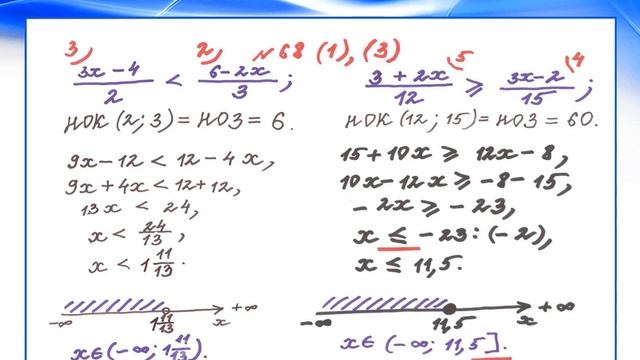 №68 (1), (3)
3) 2)
(3x-4)/2 < (6-2x)/3;
НОК(2; 3) = НОЗ = 6.
9x-12 < 12-4x,
9x+4x < 12+12,
13x < 24,
x < 24/13,
x < 1 11/13.
-∞ 1 11/13 x +∞
x∈(-∞; 1 11/13).
5 4
(3+2x)/12 ⩾ (3x-2)/15;
НОК(12; 15) = НОЗ = 60.
15+10x ⩾ 12x-8,
10x-12x ⩾ -8-15,
-2x ⩾ -23,
x ≤ -23:(-2),
x ≤ 11,5.
-∞ 11,5 x +∞
x∈(-∞; 11,5].